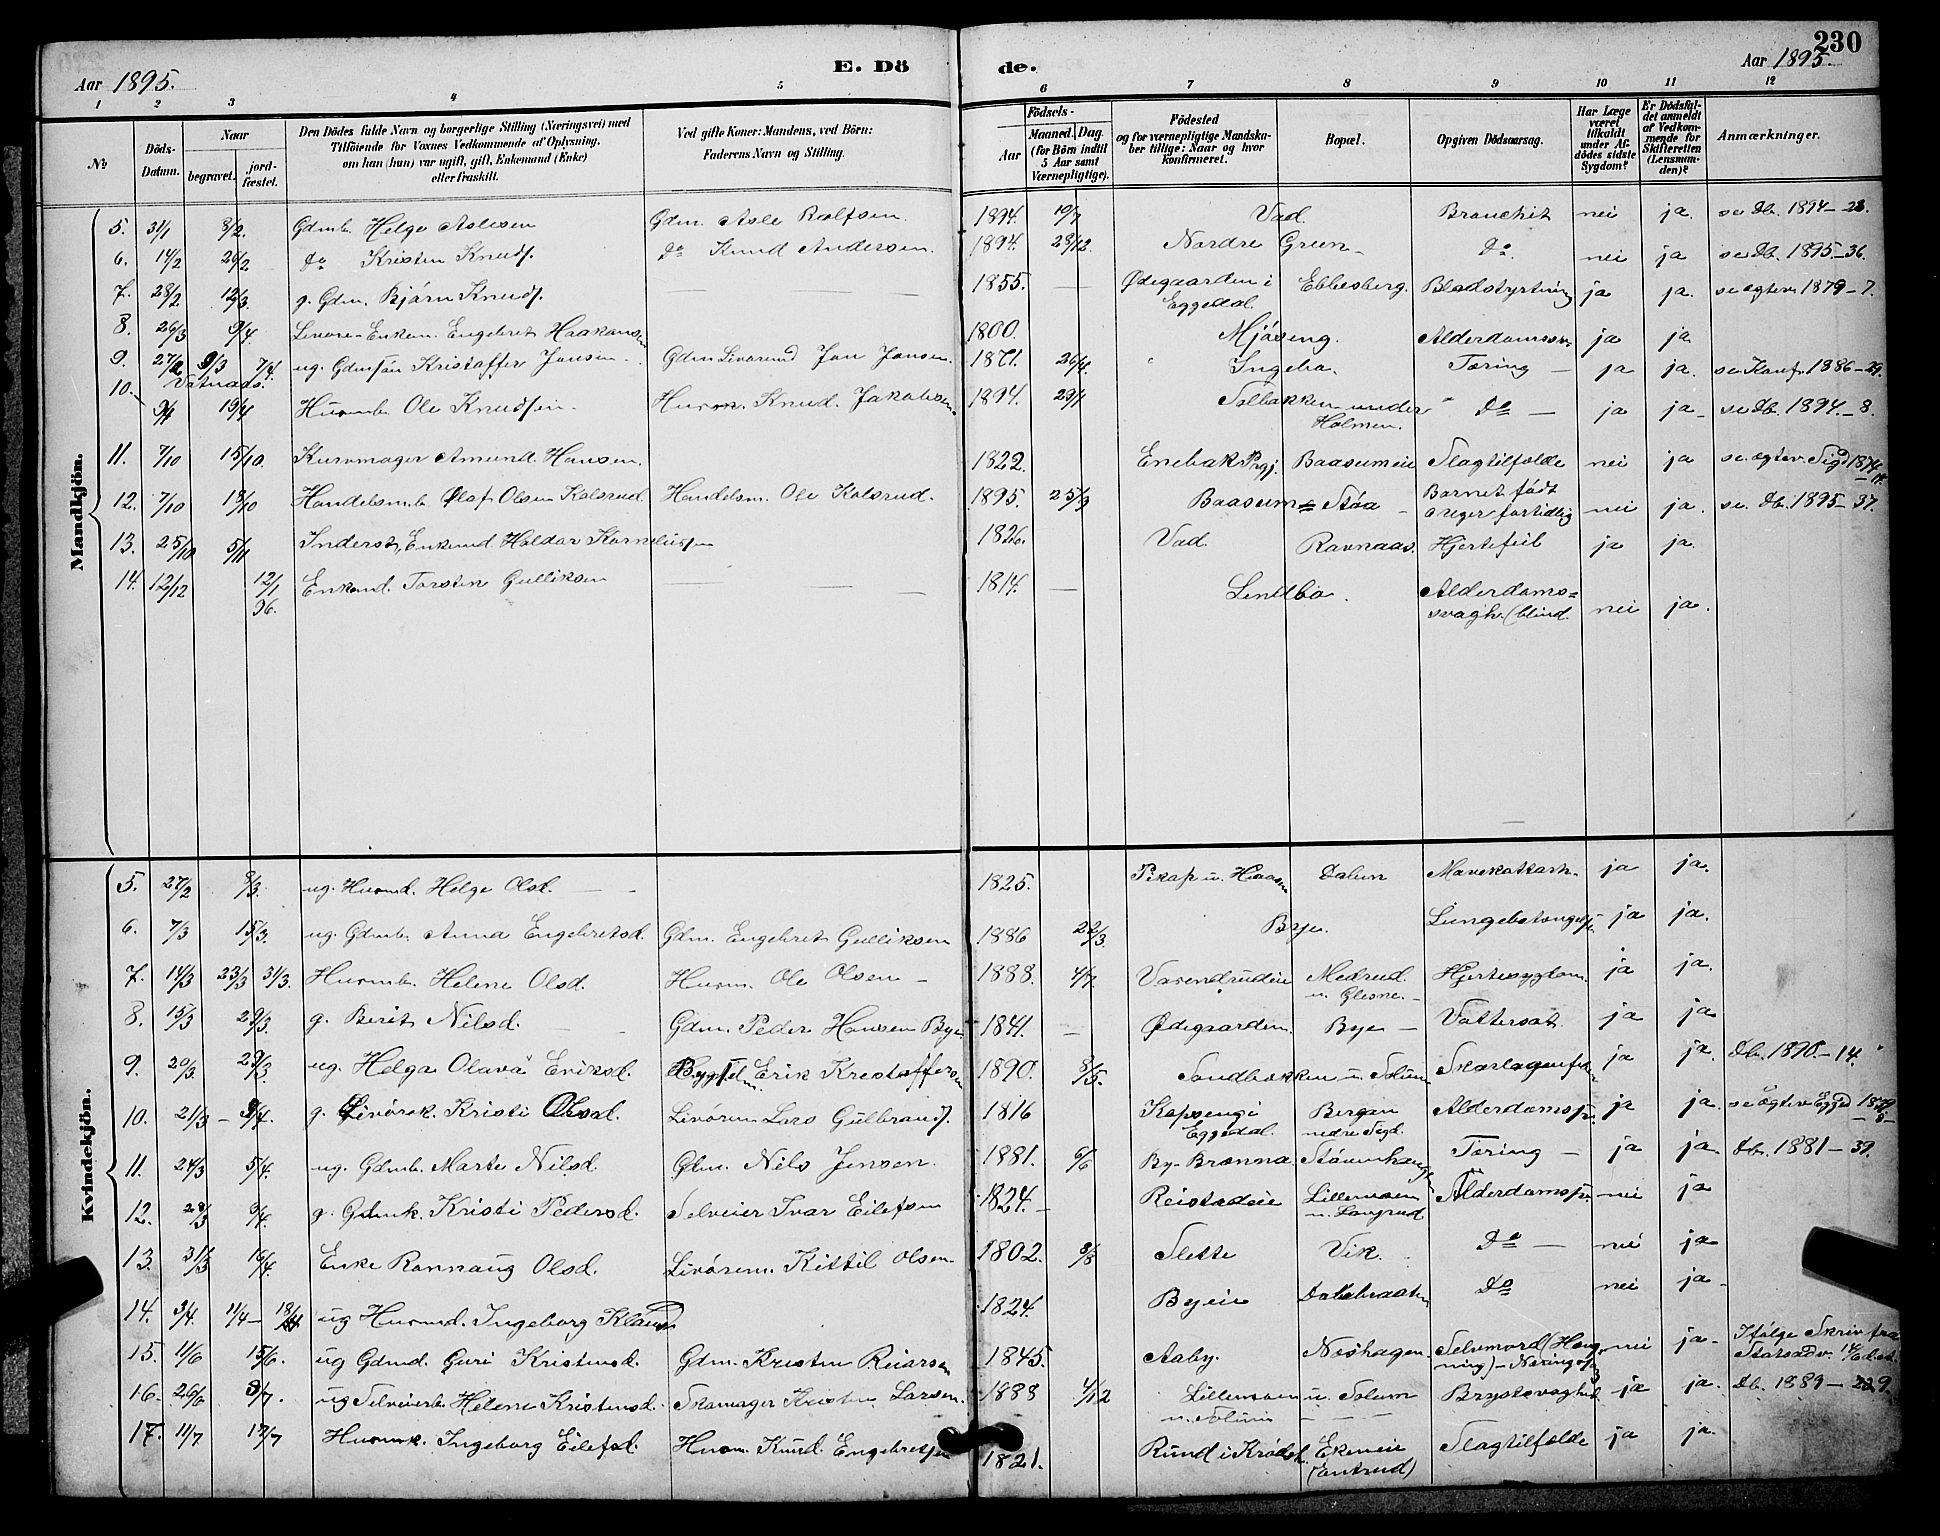 230
Aar 1895.
E. Dö de.
Aar 1895.
1 2 3 4 5 6 7 8 9 10 11 12
No
Döds-Datum.
Naar
begravet.
jord-fæstet.
Den Dödes fulde Navn og borgerlige Stilling (Næringsvei) med
Tilföiende for Voxnes Vedkommende af Oplysning,
om han (hun) var ugift, gift, Enkemand (Enke)
eller fraskilt.
Ved gifte Koner: Mandens, ved Börn:
Faderens Navn og Stilling.
Födsels-
Aar
Maaned. Dag.
(for Börn indtil
5 Aar samt
Værnepligtige).
Födested
og for værnepligtige Mandska-
ber tillige: Naar og hvor
konfirmeret.
Bopæl.
Opgiven Dödsaarsag.
Har Læge
været
tilkaldt
under Af-
dödes sidste
Sygdom?
Er Dödsfal-
det anmeldt
af Vedkom-
mende for
Skifteretten
(Lensman-
den)?
Anmærkninger.
Mandkjön.
5. 31/1 8/2 Gdmb. Helge Aslesen Gdm. Asle Rolfsen. 1894. 10/7 Vad. Bronchit nei ja. se Db. 1894-28.
6. 14/2 26/2 do Kristen Knuds. do Knud Andersen. 1894. 28/12. Nordre Green - Do. nei ja se Db. 1895-36.
7. 28/2 12/3. g. Gdm. Bjørn Knuds. 1855. Ødegaarden i Eggedal. Ebbesberg. Blodstyrtning ja ja. se ægtev. 1879-7.
8. 26/3 9/4. Enkem. Engebret Haakonsen 1800. Mjøseng. ja ja.
9. 27/2 9/3 7/4. ug. Gdmsøn Kristoffer Jonsen. Gdm Jon Jonsen. 1871. 26/4. Ingebo. Tæring - ja ja. se Konf. 1886-29.
10. 9/4 19/4 Husmb. Ole Knudsen. Husm. Knud Jakobsen. 1894. 29/1 Solbakken under Holmen. Do - ja ja - se Db. 1894-8.
11. 7/10 15/10. Kurvmager Amund Hansen. 1822. Enebak Prgj. Baasumeie Slagtilfælde nei ja se ægtev. Sigd 1874
12. 7/10 18/10 Handelsmb. Olaf Olsen Kolsrud. Handelsm. Ole Kolsrud. 1895. 25/9 Baasum= Støa - Barnet født fortidlig nei ja. se Db. 1895-37.
13. 25/10 5/11 Inderst, Enkemd. Haldor Kornelius­sen 1826. Vad. Ravnaas. Hjertefeil ja ja.
14. 12/12 12/1 96. Enkemd. Torsten Gulliksen 1814. Lindbo. Alderdoms= svagh. (blind. nei ja.
Kvindekjön.
5. 27/2 8/3. ug. Husmd. Helge Olsd. 1825. Dalen Mavekatarh. ja ja.
6. 7/3 15/3. ug. Gdmb. Anna Engebretsd. Gdm. Engebret Gulliksen 1886 22/3. Bye. ja ja.
7. 14/3 23/3 31/3. Husmb. Helene Olsd. Husm. Ole Olsen - 1888. 4/7. Vasendrudeie Medrud. u. Glesne. - Hjertesygdom. ja ja.
8. 15/3 29/3. g. Berit Nilsd. Gdm. Peder Hansen Bye 1841. Ødegaarden. Bye - Vattersot. ja ja
9. 20/3. 29/3. ug. Helga Olava Eriksd. Erik Kristoffersen 1890. 8/5. Sandbakken u. Solum Skarlagensfeber ja ja. Db. 1890-14.
10. 21/3 - 9/4. g. Kristi Olsd. Lars Gulbrands. 1816 Kopseng i Eggedal. Bergan nedre Sigd. ja ja. se Ægtev. Eggd
11. 24/3 5/4. ug. Gdmb. Marte Nilsd. Gdm. Nils Jensen. 1881. 6/6 By- Brænna Tæring - ja ja. Db. 1881-39.
12. 28/3 9/4. g. Gdmk. Kristi Pedersd. Selveier Ivar Eilefsen 1824. Reistadeie Lillemoen u. nei ja
13. 31/3 16/4. Enke Rannaug Olsd. Kittil Olsen. 1802. 8/8 Slette Vik. Do - nei ja
14. 3/4. 11/4 - 18/4 ug Husmd. Ingeborg 1824. Byeie Dalebraaten Do nei ja
15. 11/6 15/6. ug Gdmd. Guri Kristensd. Gdm. Kristen Reiarsen 1845. Aaby. Næshagen Selvmord (Hæng- ning) nei ja - Ifølge Skriv fra
16. 26/6 3/7. ug Selveierb. Helene Kristensd. Skomager Kristen Larsen. 1888 4/12 Lillemoen u. Solum Brystsvaghed ja ja. Db. 1889-
17. 11/7 17/7 Husmk. Ingeborg Eilefsd. Husm. Knud Engebretsen 1821. Rund i Krødsh. Ekeneie (Entrud) Slagtilfælde ja ja.